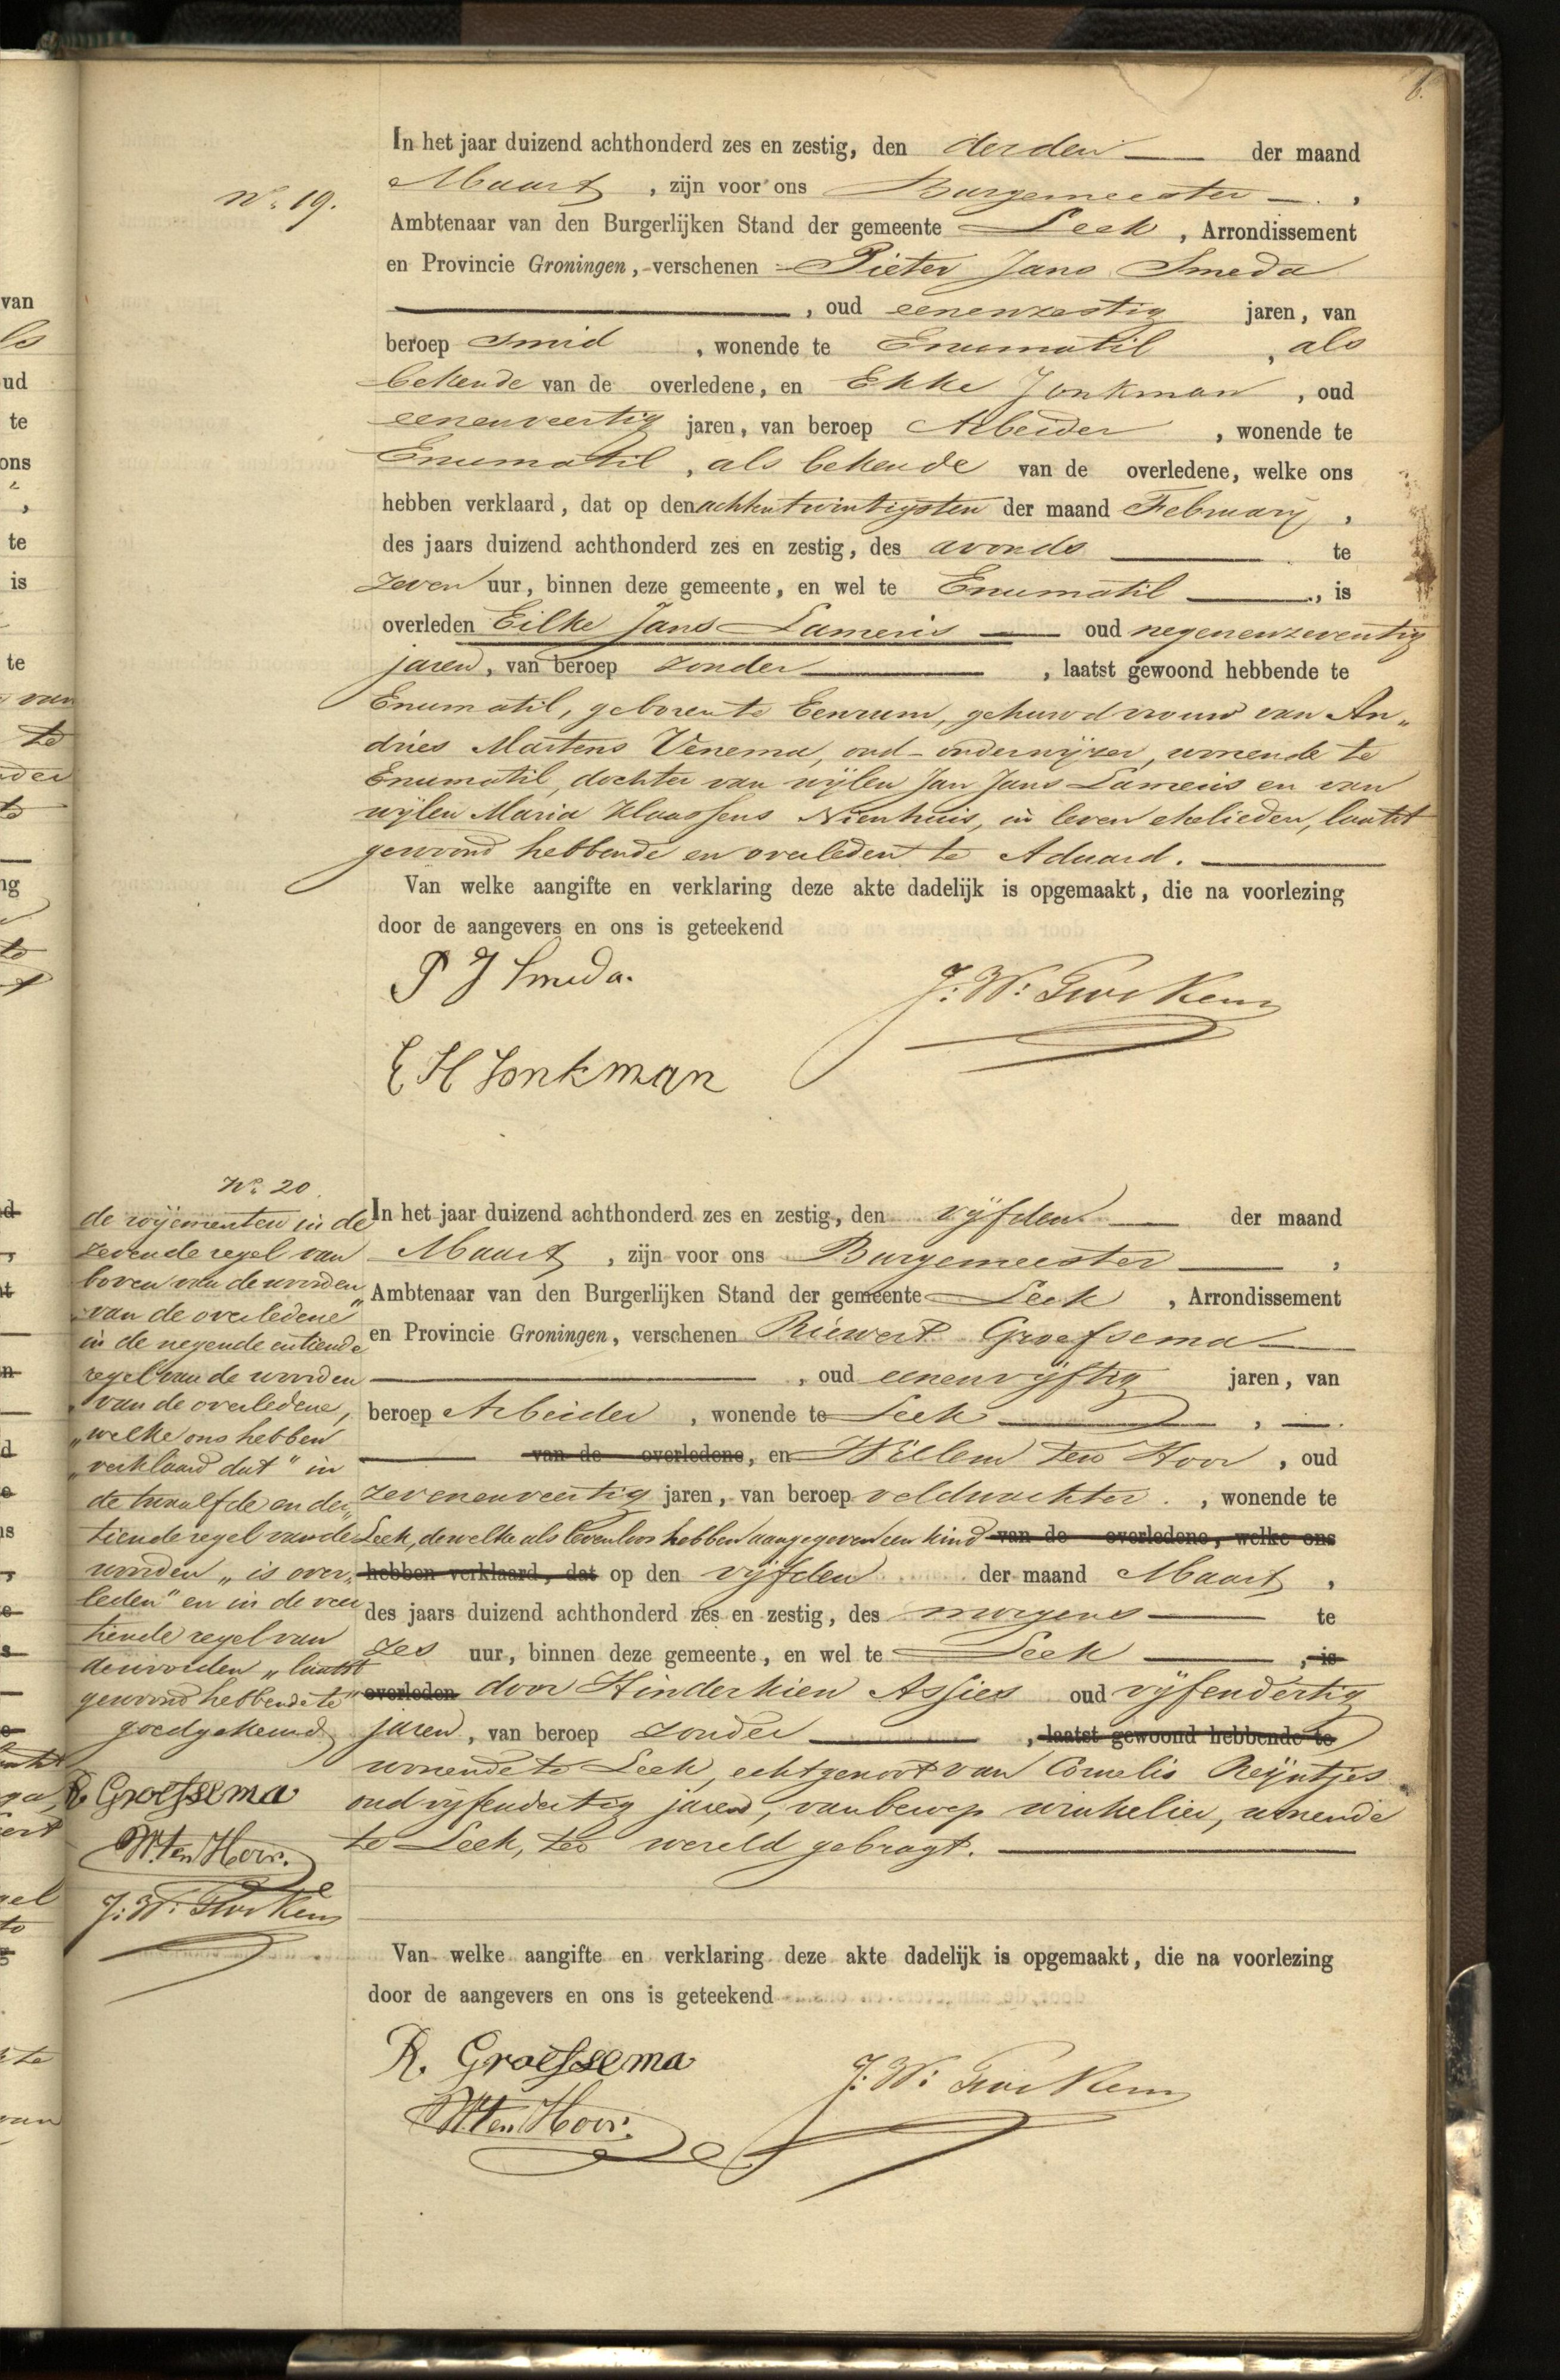 6.
N°. 19.
In het jaar duizend achthonderd zes en zestig, den derden der maand
Maart, zijn voor ons Burgemeester,
Ambtenaar van den Burgerlijken Stand der gemeente Leek, Arrondissement
en Provincie Groningen, verschenen Pieter Jans Smeda
, oud eenenzestig jaren, van
beroep smid, wonende te Enumatil, als
bekende van de overledene, en Ekke Jonkman, oud
eenenveertig jaren, van beroep Arbeider, wonende te
Enumatil, als bekende van de overledene, welke ons
hebben verklaard, dat op den achtentwintigsten der maand February,
des jaars duizend achthonderd zes en zestig, des avonds te
zeven uur, binnen deze gemeente, en wel te Enumatil, is
overleden Eilke Jans Lameris oud negenenzeventig
jaren, van beroep zonder, laatst gewoond hebbende te
Enumatil, geboren te Eenrum, gehuwd vrouw van An„
dries Martens Venema, oud-onderwijzer, wonende te
Enumatil, dochter van wijlen Jan Jans Lameris en van
wijlen Maria Klaassens Nienhuis, in leven ehelieden, laatst
gewoond hebbende en overleden te Aduard.
Van welke aangifte en verklaring deze akte dadelijk is opgemaakt, die na voorlezing
door de aangevers en ons is geteekend
P J Smeda.
J: W:
E H Jonkman
N°. 20.
de royementen in de
zevende regel van
boven van de woorden
„van de overledene"
in de negende en tiende
regel van de woorden
„van de overledene,
„welke ons hebben
„verklaard dat" in
de twaalfde en der„
tiende regel van de
woorden „is over„
leden" en in de veer
tiende regel van
de woorden „laatst
gewoond hebbende te"
goedgekeurd
R. Groefsema
W. ten Hoor.
J: W:
In het jaar duizend achthonderd zes en zestig, den vijfden der maand
Maart, zijn voor ons Burgemeester,
Ambtenaar van den Burgerlijken Stand der gemeente Leek, Arrondissement
en Provincie Groningen, verschenen Riewert Groefsema
, oud eenenvijftig jaren, van
beroep Arbeider, wonende te Leek,
van de overledene, en Willem ten Hoor, oud
zevenenveertig jaren, van beroep veldwachter, wonende te
Leek, dewelke als levenloos hebben aangegeven een kind van de overledene, welke ons
hebben verklaard, dat op den vijfden der maand Maart,
des jaars duizend achthonderd zes en zestig, des morgens te
zes uur, binnen deze gemeente, en wel te Leek, is
overleden door Hinderkien Assies oud vijfendertig
jaren, van beroep zonder, laatst gewoond hebbende te
wonende te Leek, echtgenoot van Cornelis Reijntjes
oud vijfendertig jaren, van beroep winkelier, wonende
te Leek, ter wereld gebragt.
Van welke aangifte en verklaring deze akte dadelijk is opgemaakt, die na voorlezing
door de aangevers en ons is geteekend
R. Groefsema
J: W:
W. ten Hoor.